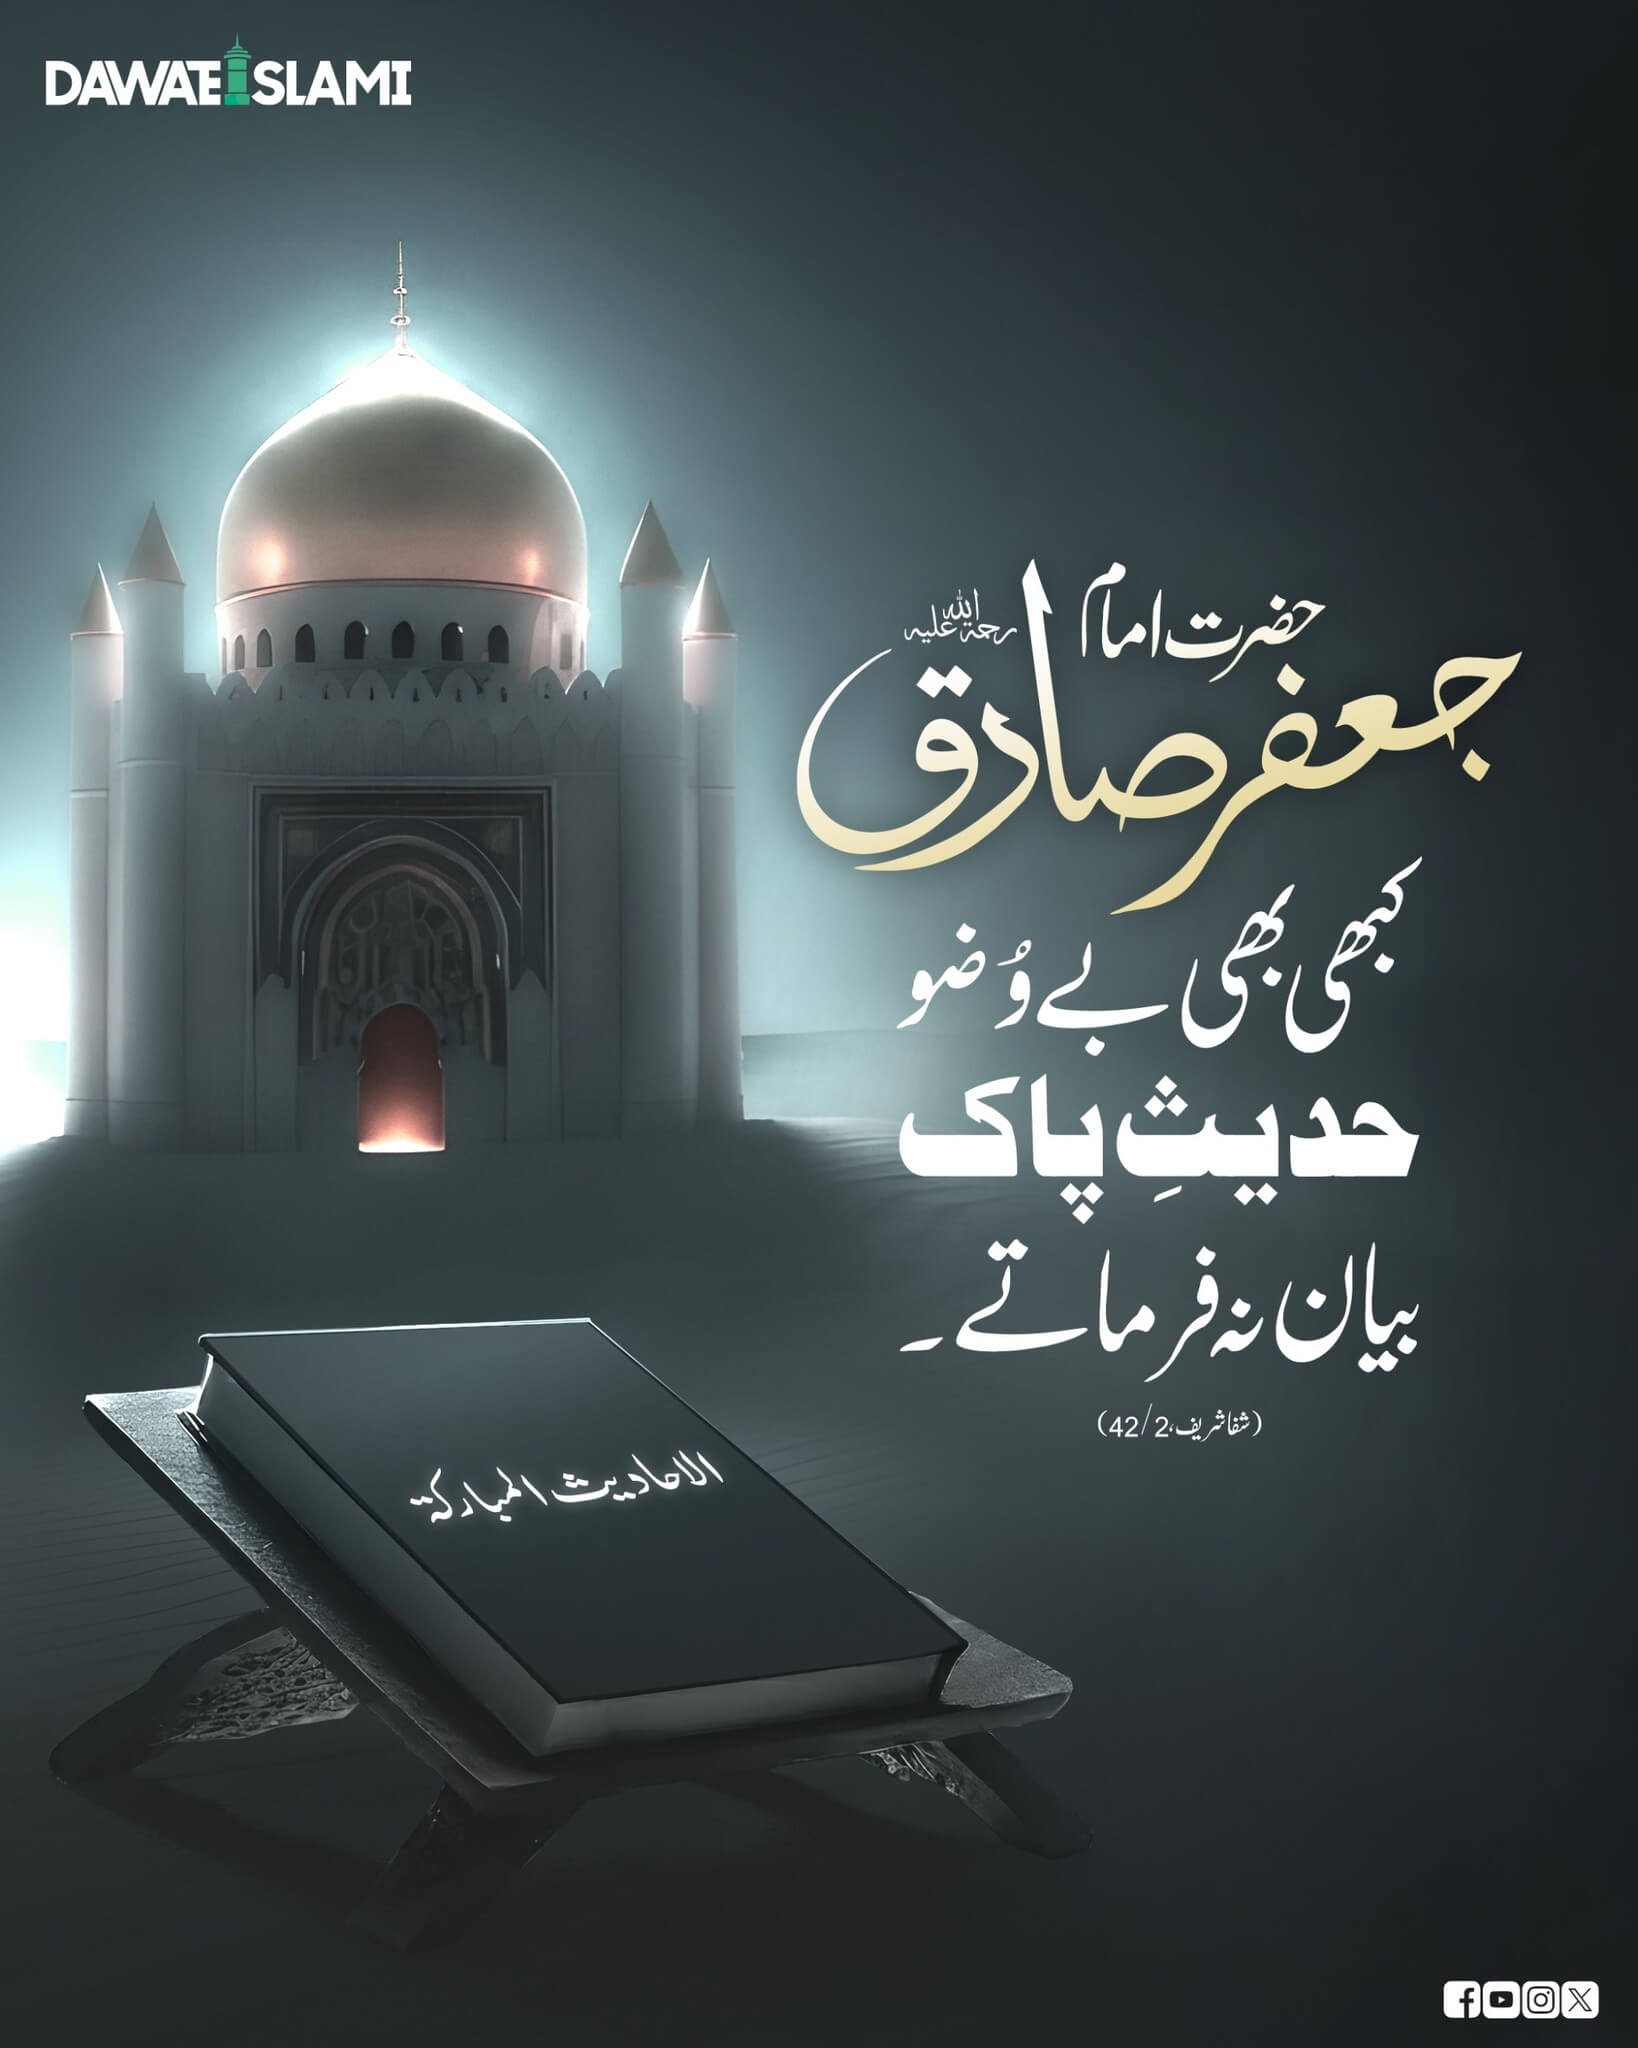 DAWATEISLAMI
حضرت امام
جعفر صادق رحمۃ اللہ علیہ
کبھی بھی بے وُضو
حدیثِ پاک
بیان نہ فرماتے۔
(شفا شریف، 42/2)
الاحادیث المبارکة